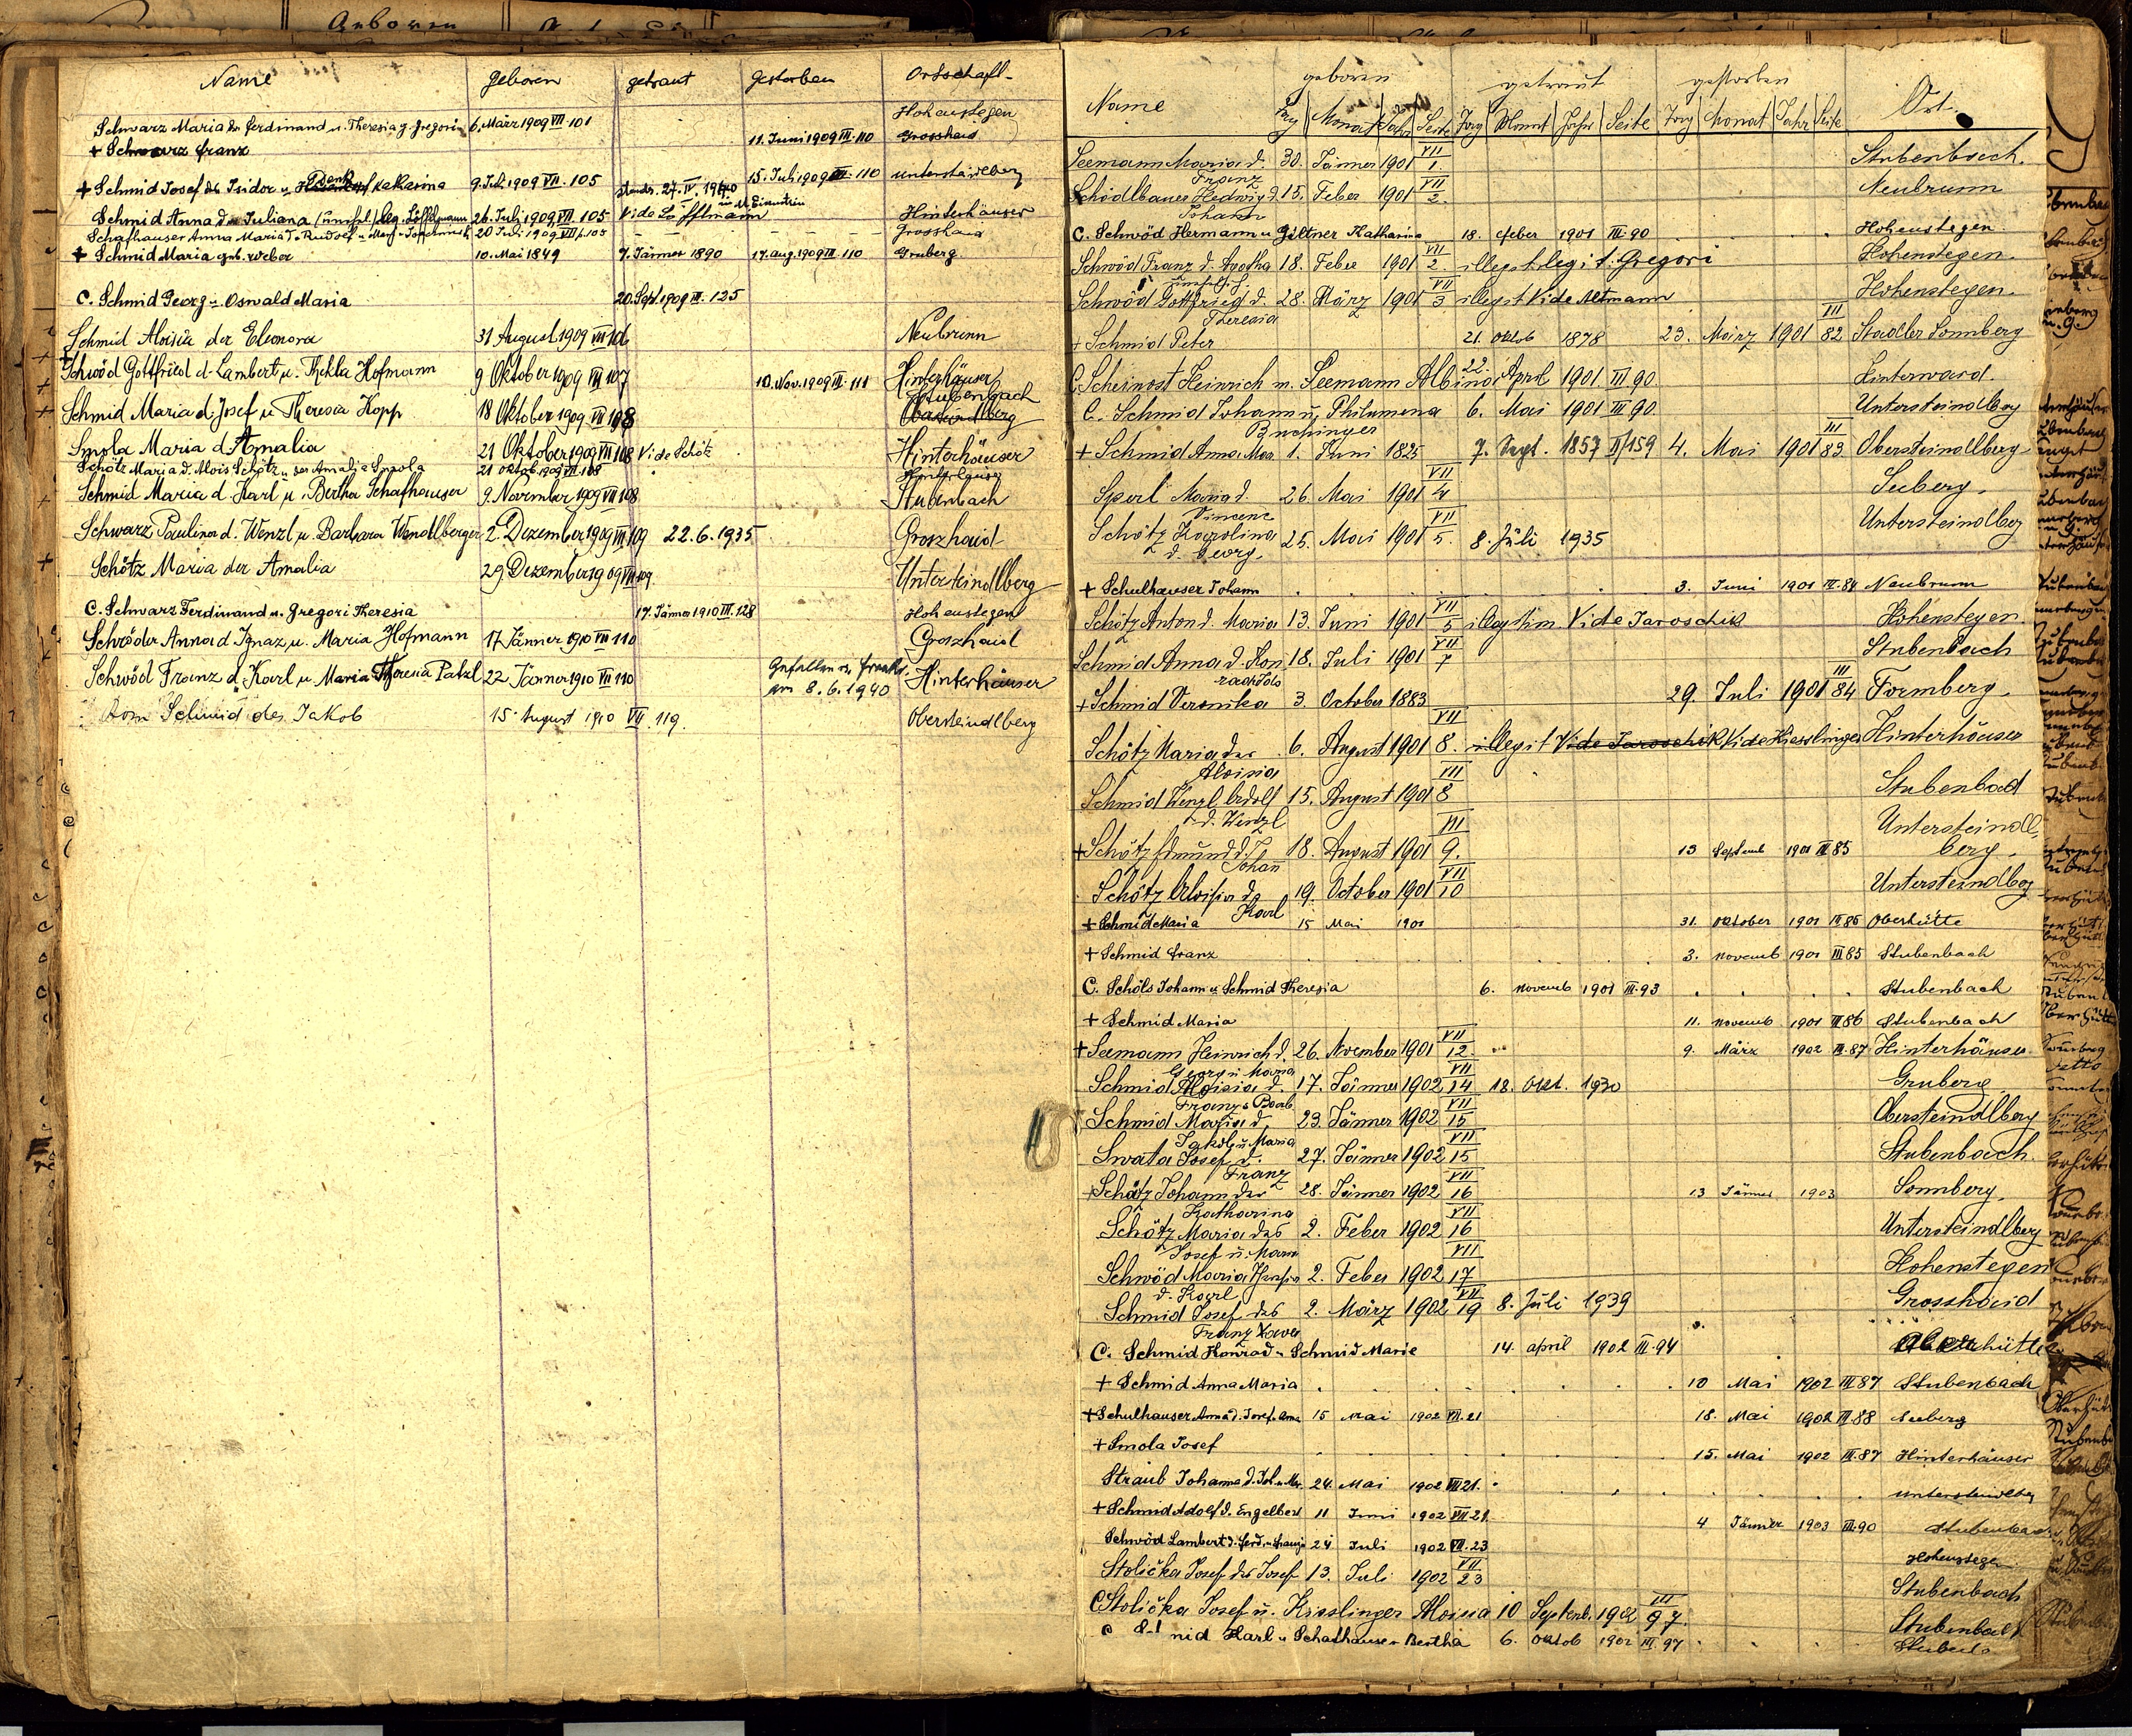 Name geboren getraut gestorben Ortschaft
Schwarz Maria d. Ferdinand u. Theresia g. Gregori 6. März 1909 VII 101 Hohenstegen
+ Schwarz Franz 11. Juni 1909 III 110 Grosshaid
+ Schmid Josef des Isidor u. Denk Katharina 9. Juli 1909 VII. 105 15. Juli 1909 III. 110 Untersteindlberg
Schmid Anna der Juliana leg. Löffelmann 26. Juli 1909 VII 105 Vide Löfflmann Hinterhäuser
Schafhauser Anna Maria d. Rudolf 20 Juli 1909 VII 105 Grosshaid
+ Schmid Maria geb. Weber 10. Mai 1849 7. Jänner 1890 17. Aug. 1909 III 110 Gruberg
C. Schmid Georg u. Oswald Maria 20. Sept. 1909 III. 125
Schmid Aloisia der Eleonora 31 August 1909 VII 106 Neubrunn
+ Schwöd Gottfried d. Lambert u. Thekla Hofmann 9 Oktober 1909 VII 107 10. Nov. 1909 III. 111 Hinterhäuser
Schmid Maria d. Josef u. Theresia Kopp 18 Oktober 1909 VII 108 Stubenbach
Smola Maria d Amalia 21 Oktober 1909 VII 108 Vide Schötz Hinterhäuser
Schötz Maria d. Alois Schötz u. der Amalia Smola 21 Oktob. 1909 VII. 108
Schmid Maria d. Karl u. Bertha Schafhauser 9. November 1909 VII 108 Stubenbach
Schwarz Paulina d. Wenzl u. Barbara Wendlberger 2. Dezember 1909 VII 109 22. 6. 1935 Groszhaid
Schötz Maria der Amalia 29 Dezember 1909 VII 109 Untersteindlberg
C. Schwarz Ferdinand u. Gregori Theresia 17. Jänner 1910 III. 128 Hohenstegen
Schröder Anna d Ignaz u. Maria Hofmann 17 Jänner 1910 VII 110 Groszhaid
Schwöd Franz d. Karl u. Maria Theresia Patzl 22 Jänner 1910 VII 110 Gefallen in Frankr. am 8. 6. 1940 Hinterhäuser
Schmid des Jakob 15. August 1910 VII. 119. Obersteindlberg
geboren getraut gestorben
Name Tag Monat Jahr Seite Tag Monat Jahr Seite Tag Monat Jahr Seite Ort
Seemann Maria d. Franz 30. Jänner 1901 VII 1. Stubenbach.
Schödlbauer Hedwig d. Johann 15. Feber 1901 VII 2. Neubrunn
C. Schwöd Hermann u Giltner Katharina 18. Feber 1901 III. 90 Hohenstegen
Schwöd Franz d. Agatha 18. Feber 1901 VII 2. illegit legit. Gregori Hohenstegen.
Schwöd Gottfried d. Theresia 28. März 1901 VII 3 illegit Vide Altmann Hohenstegen.
+ Schmid Peter 21. Oktob 1878 23. März 1901 III 82 Stadler Sonnberg
C. Scheinost Heinrich u. Seemann Albina 22. April 1901 III 90 Hinterwaid.
C. Schmid Johann u. Philumena Buchinger 6. Mai 1901 III 90. Untersteindlberg
+ Schmid Anna Mar. 1. Juni 1825 7. Sept. 1857 II/159 4. Mai 1901 III 83 Obersteindlberg
Sperl Maria d. Vincenz 26. Mai 1901 VII 4 Seeberg.
Schötz Karolina d. Georg 25. Mai 1901 VII 5. 8. Juli 1935 Untersteindlberg
+ Schulhauser Johann 3. Juni 1901 III. 84 Neubrunn
Schötz Anton d. Maria 13. Juni 1901 VII 5 illegitim Vide Jaroschik Hohenstegen
Schmid Anna d. Kon 18. Juli 1901 VII 7 Stubenbach
+ Schmid Veronika 3. October 1883 29. Juli 1901 III 84 Formberg.
Schötz Maria der Aloisia 6. August 1901 VII 8. illegit Vide Jaroschik Vide Kiesslinger Hinterhäuser
Schmid Wenzl Adolf d. Wenzl 15. August 1901 VII 8 Stubenbach
+ Schötz Edmund d. Johann 18. August 1901 VII 9. 13 Septemb 1901 III 85 Untersteindlberg.
Schötz Aloisia d. Karl 19. October 1901 VII 10 Untersteindlberg
+ Schmid Maria 15 Mai 1901 31. Oktober 1901 III. 85 Oberhütte
+ Schmid Franz 3. Novemb 1901 III 85 Stubenbach
C. Schöls Johann u. Schmid Theresia 6. Novemb 1901 III. 93 Stubenbach
+ Schmid Maria 11. Novemb 1901 III 86 Stubenbach
+ Seemann Heinrich d. Georg u Maria 26. November 1901 VII 12. 9. März 1902 III. 87 Hinterhäuser
Schmid Aloisia d. Franz u Barb 17. Jänner 1902 VII 14 18. Okt. 1930 Gruberg
Schmid Maria d. Jakob u Maria 23. Jänner 1902 VII 15 Obersteindlberg
Swata Josef d. Franz 27. Jänner 1902 VII 15 Stubenbach.
+ Schötz Johann der Katharina 28. Jänner 1902 VII 16 13 Jänner 1903 Sonnberg.
Schötz Maria des Josef u. Maria 2. Feber 1902 VII 16 Untersteindlberg
Schwöd Maria Theresia d. Karl 2. Feber 1902 VII 17 Hohenstegen
Schmid Josef des Franz Xaver 2. März 1902 VII 19 8. Juli 1939 Grosshaid
C. Schmid Konrad u. Schmid Marie 14. April 1902 III. 94 Oberhütte
+ Schmid Anna Maria 10 Mai 1902 III 87 Stubenbach
+ Schulhauser Anna d. Josef u. Anna 15 Mai 1902 VII. 21 18. Mai 1902 III 88 Seeberg
+ Smola Josef 15. Mai 1902 III. 87 Hinterhäuser
Straub Johanna d. Joh. u. Mar. 24. Mai 1902 VII 21. Untersteindlberg
+ Schmid Adolf d. Engelbert 11 Juni 1902 VII 21. 4 Jänner 1903 III. 90 Stubenbach
Schwöd Lambert d. Ferd. u. 24 Juli 1902 VII. 23 Hohenstegen
Stolička Josef des Josef 13. Juli 1902 VII 23 Stubenbach
C Stolička Josef u. Kisslinger Aloisia 10 Septemb. 1902 III 97. Stubenbach
C Karl u Schafhauser Bertha 6. Oktob 1902 III. 97